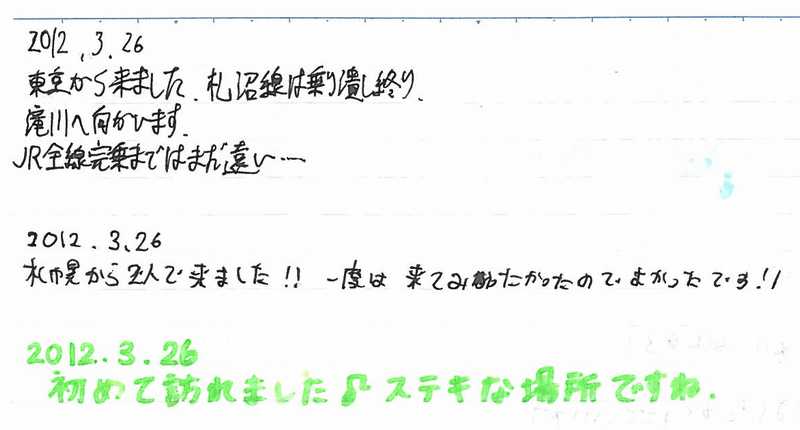 2012.3.26
東京から来ました.札沼線は乗り潰し終り.
滝川へ向かいます.
JR全線完乗まではまだ遠い…
2012.3.26
札幌から2人で来ました!! 一度は 来てみたかったので よかったです!!
2012.3.26
初めて訪れました♪ ステキな場所ですね.